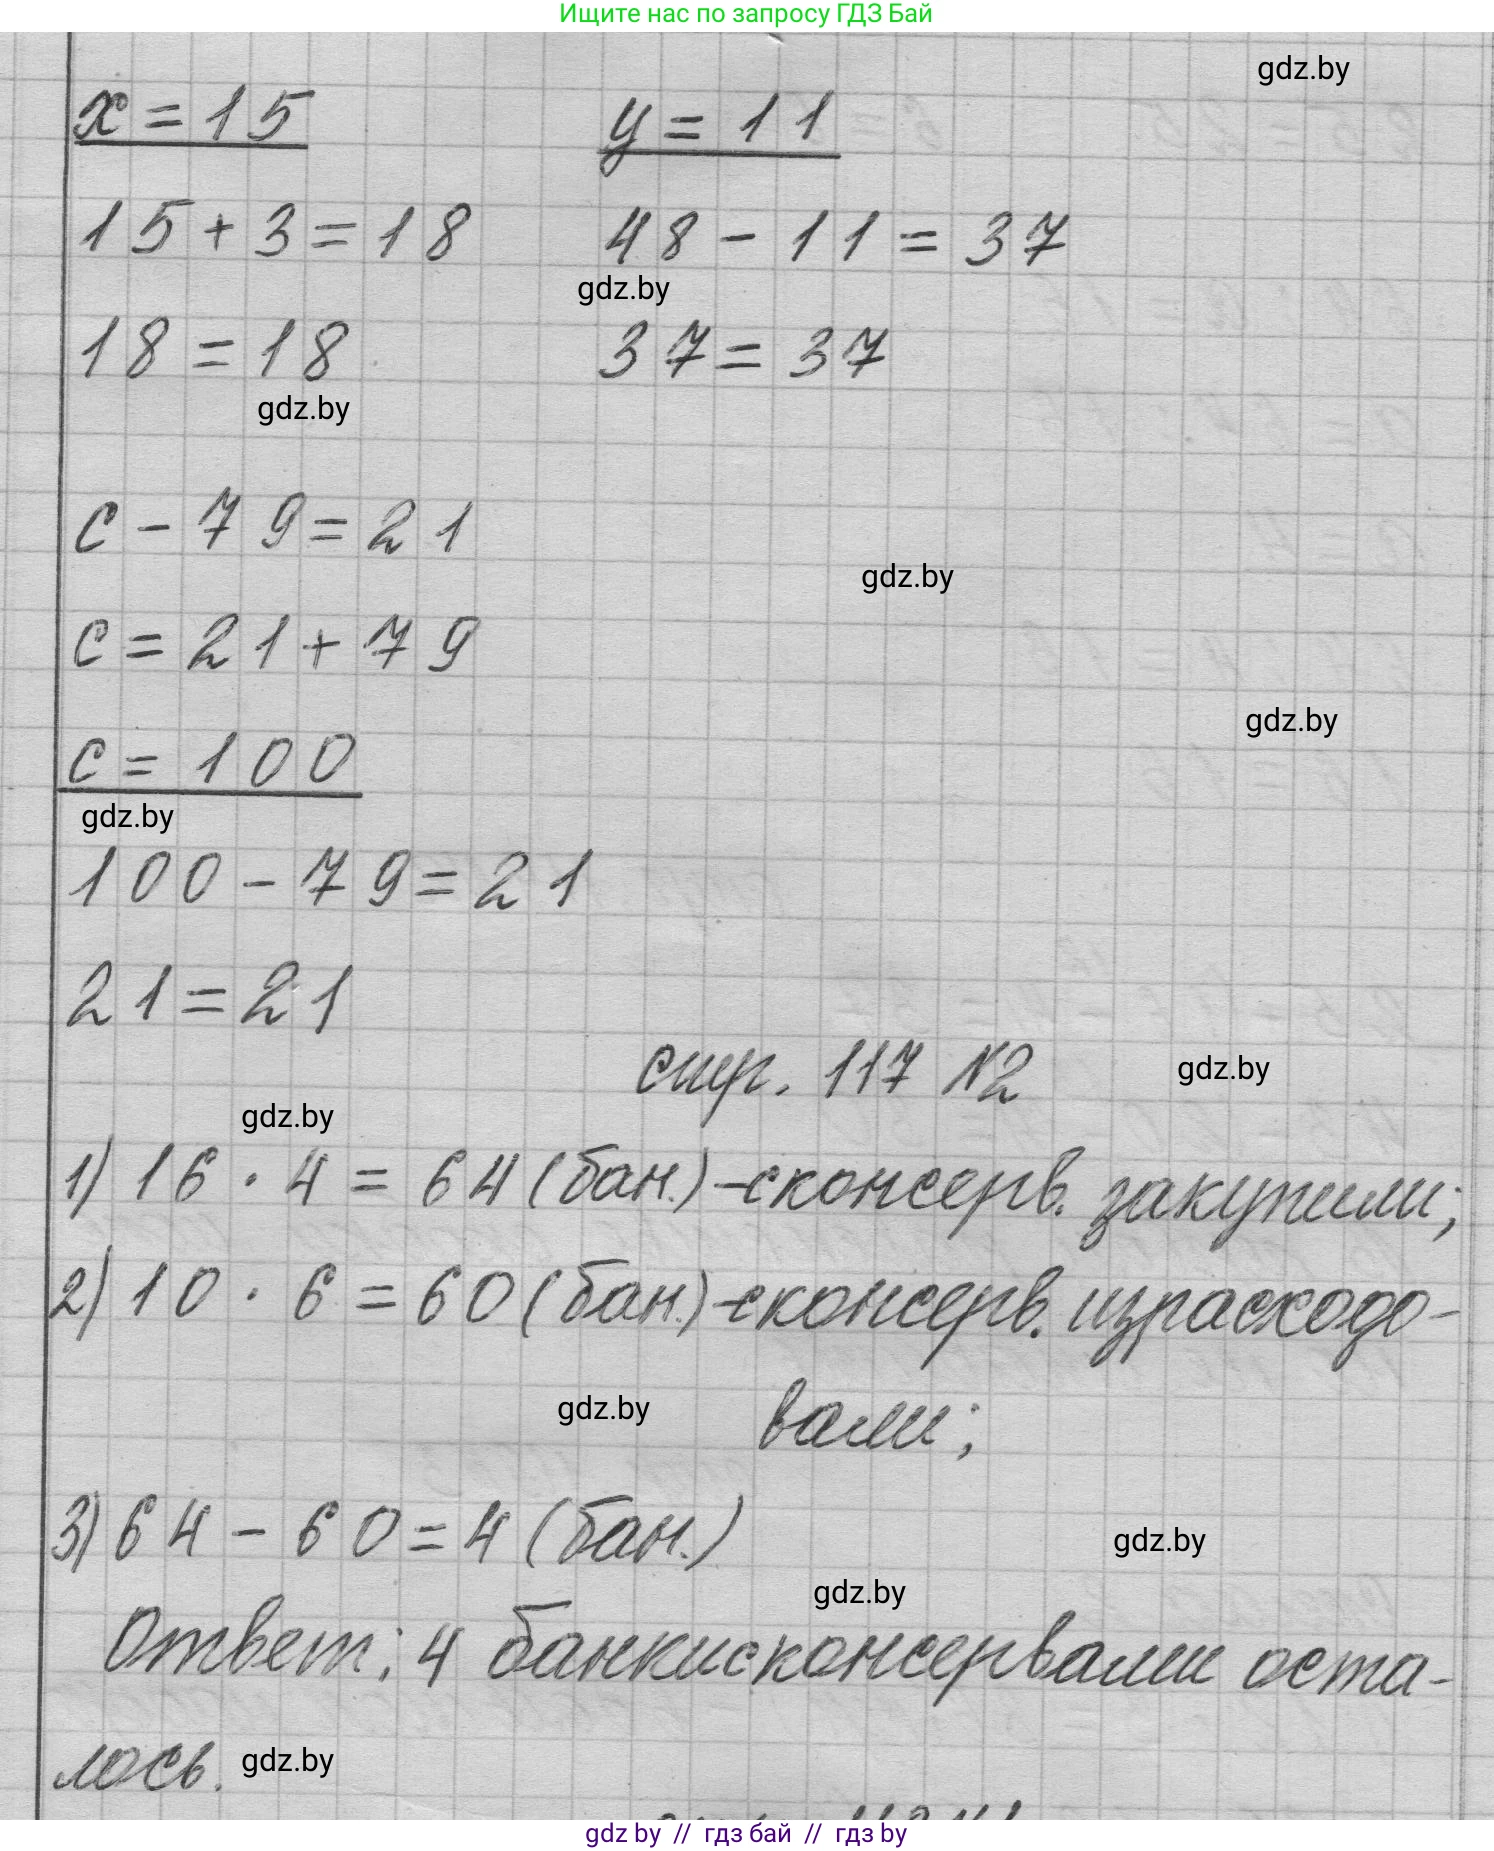 Ищите нас по запросу ГДЗ Бай
gdz.by
x = 15 y = 11
15 + 3 = 18 48 - 11 = 37
gdz.by
18 = 18 37 = 37
gdz.by
c - 79 = 21
gdz.by
c = 21 + 79
gdz.by
c = 100
gdz.by
100 - 79 = 21
21 = 21
стр. 117 №2
gdz.by
gdz.by
1) 16 · 4 = 64 (бан.) - с консерв. закупили;
2) 10 · 6 = 60 (бан.) - с консерв. израсходо-
вали;
gdz.by
3) 64 - 60 = 4 (бан.)
gdz.by
gdz.by
Ответ: 4 банки с консервами оста-
лось.
gdz.by
gdz by // гдз бай // гдз by